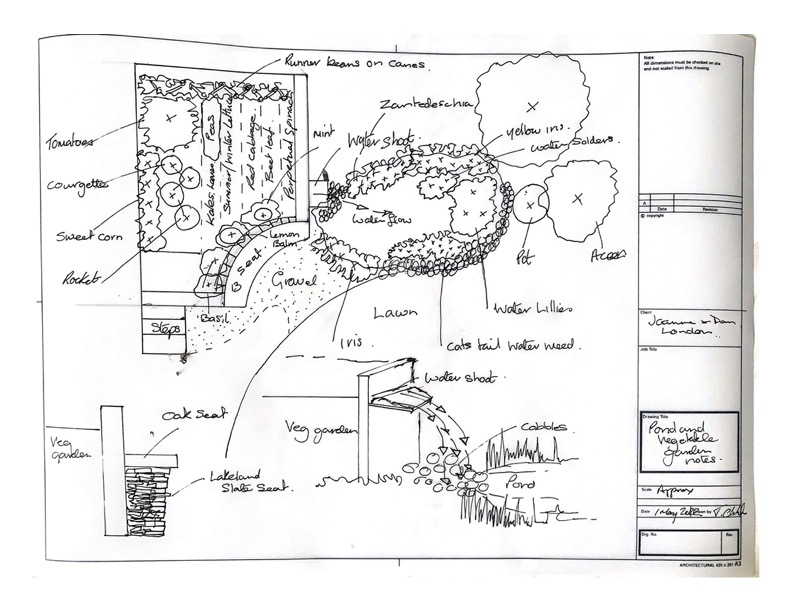 Runner beans on canes.
Tomatoes
Courgette
Sweet corn
Rocket
Peas
Summer/winter lettuce
Red cabbage
Beet leaf
Perpetual Spinach
mint
Water shoot.
Zantedeschia
yellow iris.
water Solders.
Water flow
Lemon
Balm
Seat
B
Gravel
Basil
Steps
Iris
Lawn
Cats tail water weed.
Water Lillies
Pot
Acers
Veg
garden
Oak Seat
Lakeland
Slate Seat.
Veg garden
Water shoot.
Cobbles
Pond
Note:
All dimensions must be checked on site
and not scaled from this drawing
A
Date
Revision
© copyright
Client
Joanne & Dan
London.
Job Title
Drawing Title
Pond and
vegetable
garden
notes.
Scale
Approx
Date
1 May
Drg. No.
Rev
ARCHITECTURAL 420 × 297 A3